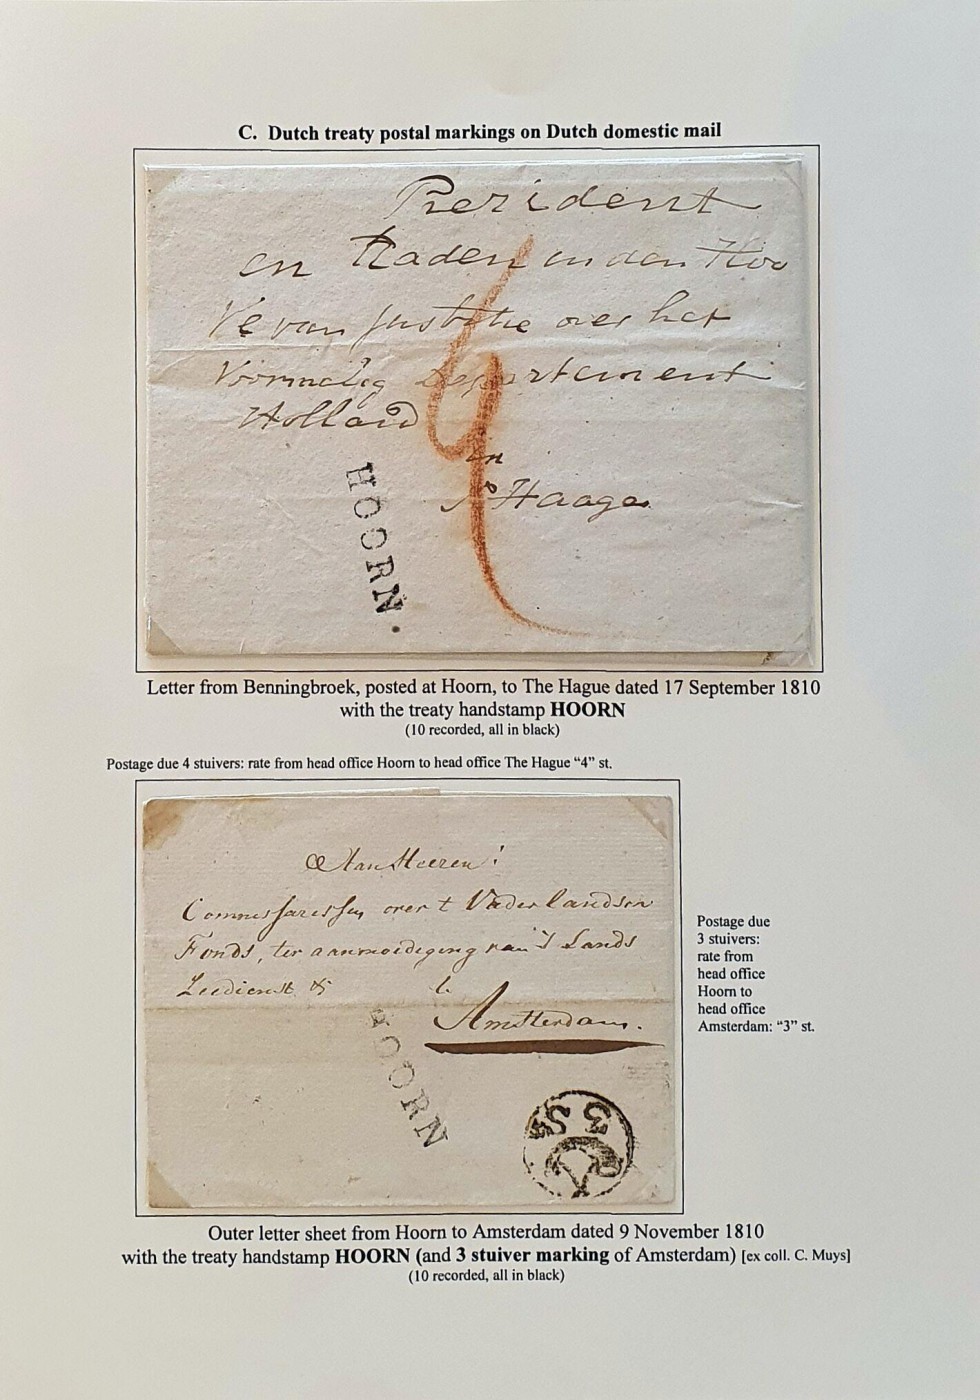 C. Dutch treaty postal markings on Dutch domestic mail
Prezident
en Raden in den Hoo
Ve van Justitie over het
Voormalig Departement
Holland
in
s Haage
HOORN.
Letter from Benningbroek, posted at Hoorn, to The Hague dated 17 September 1810
with the treaty handstamp HOORN
(10 recorded, all in black)
Postage due 4 stuivers: rate from head office Hoorn to head office The Hague “4” st.
Aan Heeren
Commissarissen over t Vaderlandsch
Fonds, ter aanmoediging van 's Lands
Zeedienst &
te
Amsterdam.
HOORN
3 S
Postage due
3 stuivers:
rate from
head office
Hoorn to
head office
Amsterdam: “3” st.
Outer letter sheet from Hoorn to Amsterdam dated 9 November 1810
with the treaty handstamp HOORN (and 3 stuiver marking of Amsterdam) [ex coll. C. Muys]
(10 recorded, all in black)